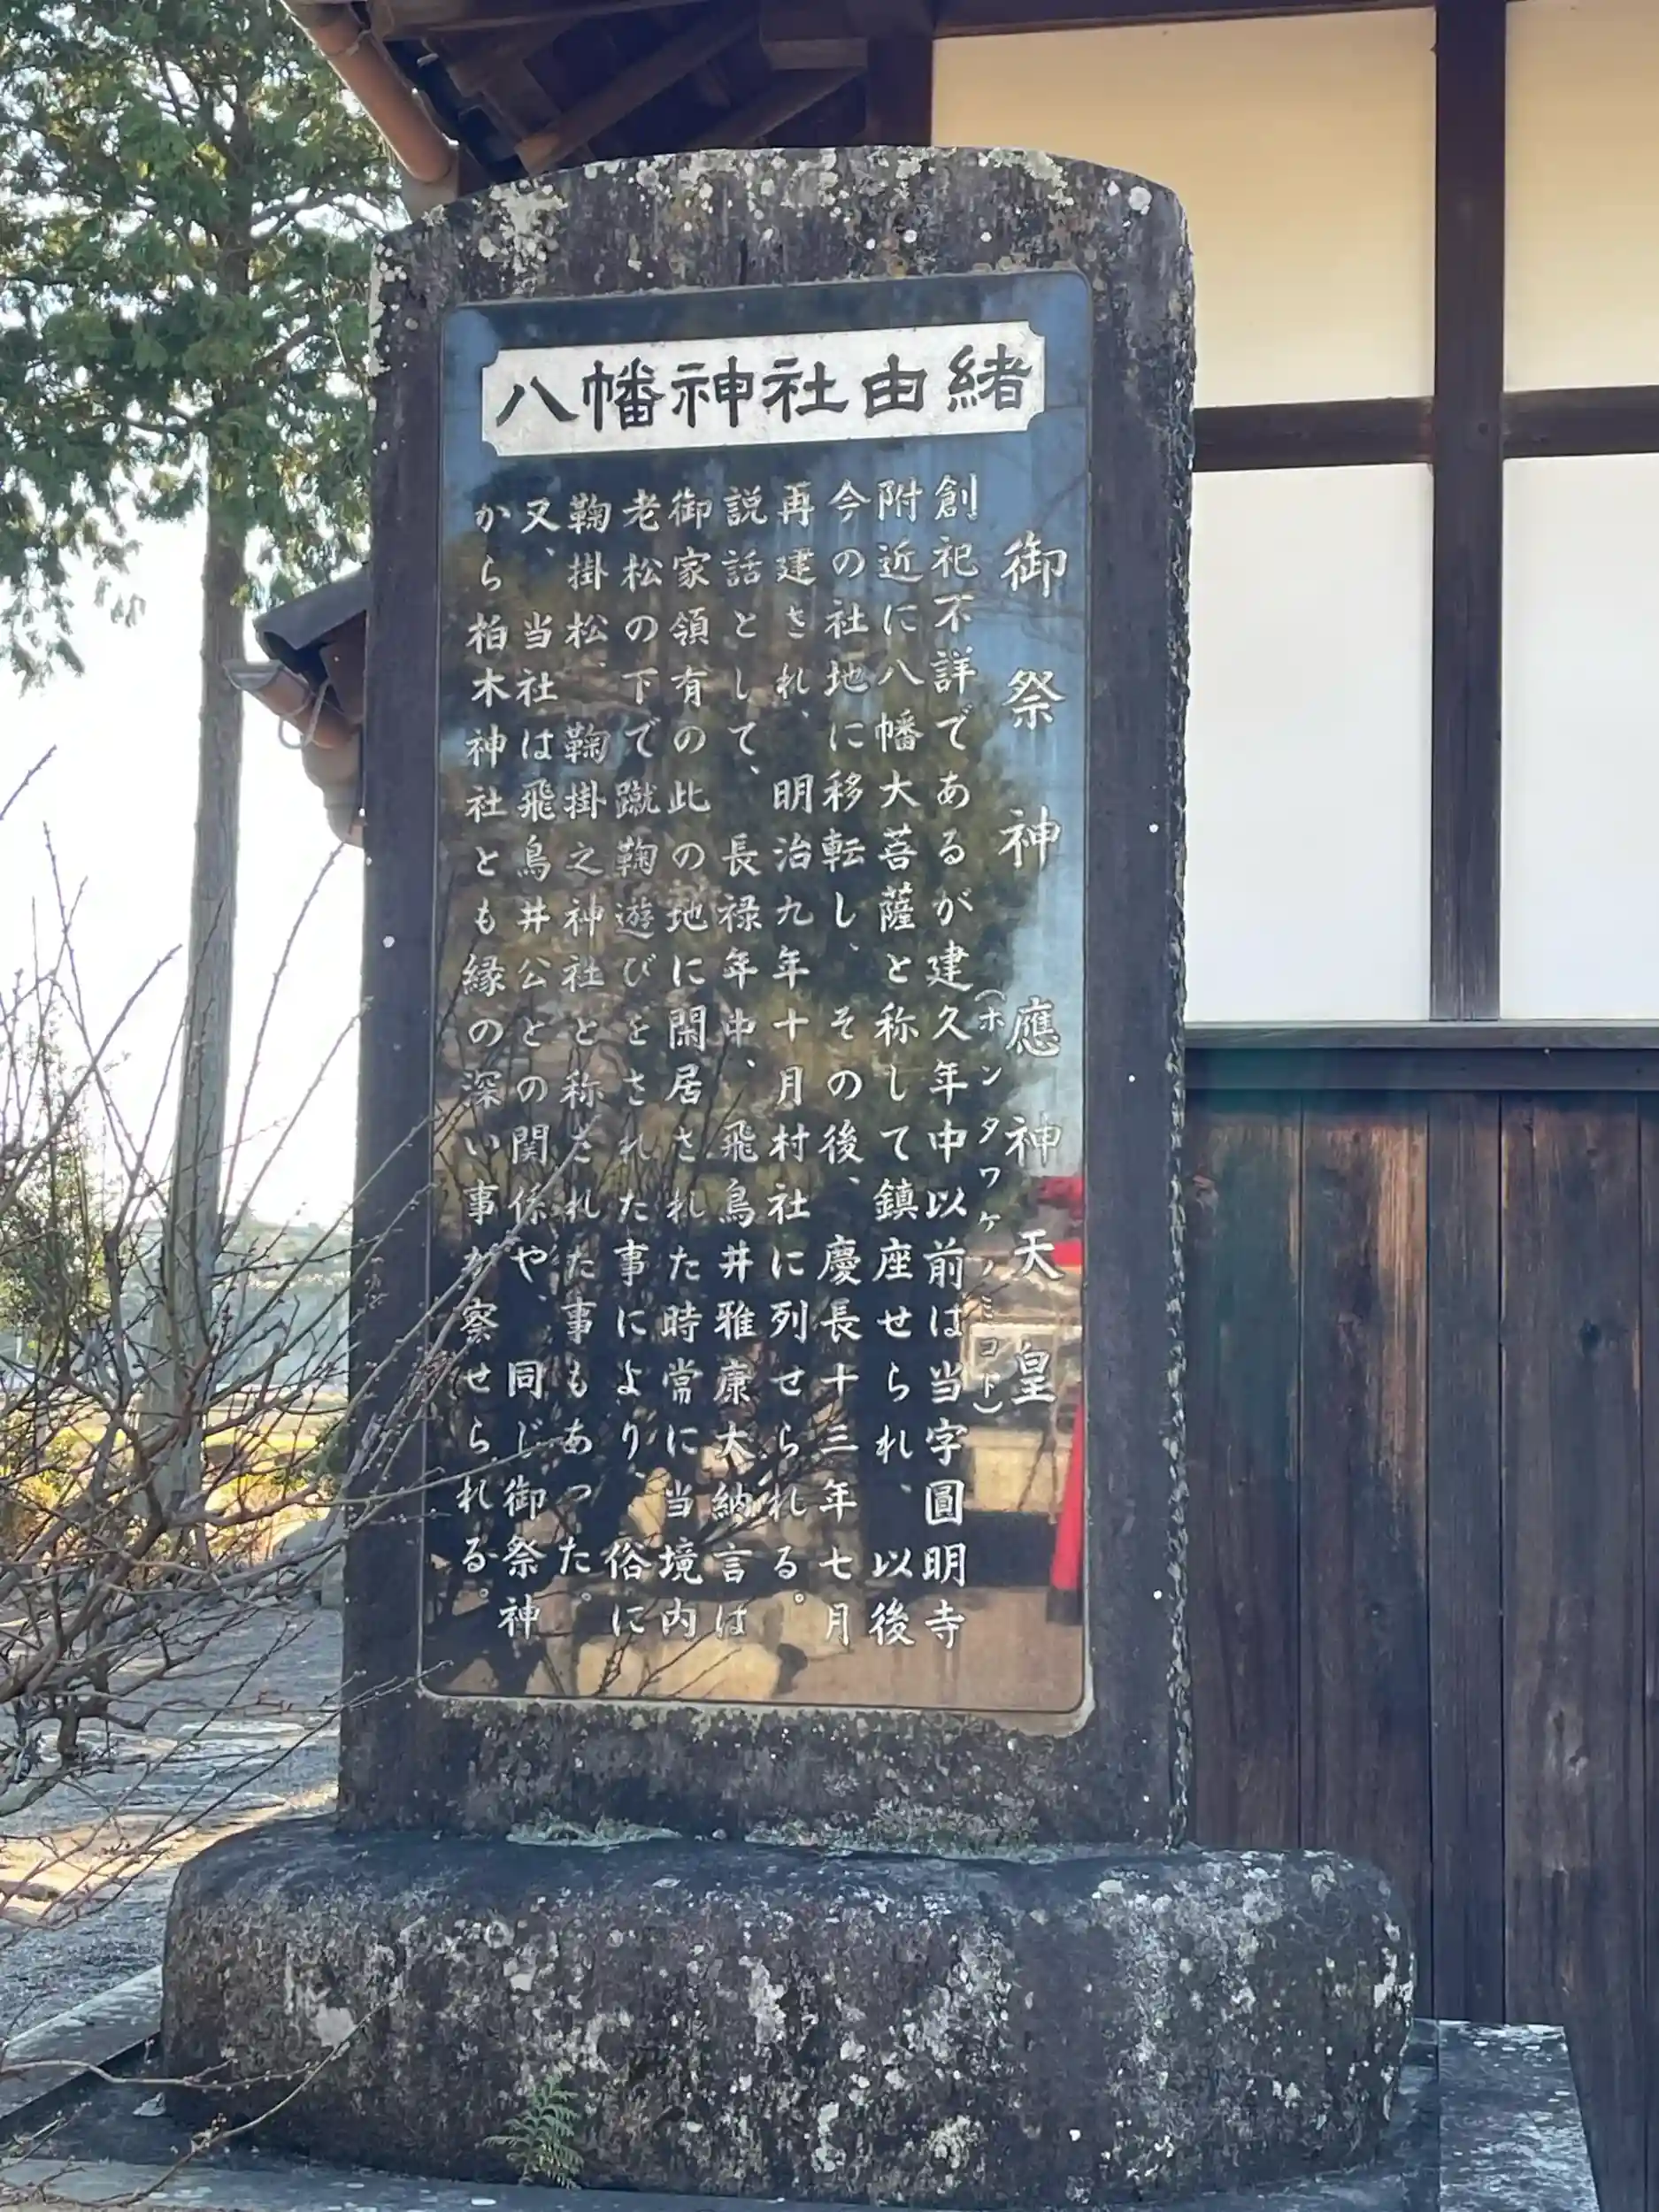 八幡神社由緒
御祭神 應神天皇
(ホンタワケノミコト)
創祀不詳であるが建久年中以前は当字圓明寺
附近に八幡大菩薩と称して鎮座せられ、以後
今の社地に移転し、その後、慶長十三年七月
再建され、明治九年十月村社に列せられる。
説話として、長禄年中、飛鳥井雅康大納言は
御家領有の此の地に閑居された時常に当境内
老松の下で蹴鞠遊びをされた事により、俗に
鞠掛松、鞠掛之神社と称された事もあった。
又、当社は飛鳥井公との関係や、同じ御祭神
から柏木神社とも縁の深い事が察せられる。